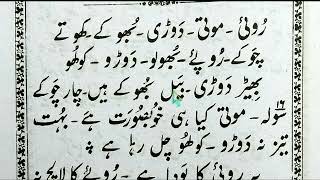 رُوئی ۔ موتی ۔ دَوڑی ۔ بُھوکے ۔ کھوتے
چوکے ۔ رُوپئے ۔ بُھولو ۔ دوڑو ۔ کولھُو
بھیڑ دَوڑی ۔ بَیل بُھوکے ہیں ۔ چار چوکے
۱۶ سولہ ۔ موتی کیا ہی خُوبصُورت ہے ۔ بہُت
تیز نہ دَوڑو ۔ کولھُو چل رہا ہے
یہ روئی کا پودا ہے ۔ رُوپئے کا لالچ نہ